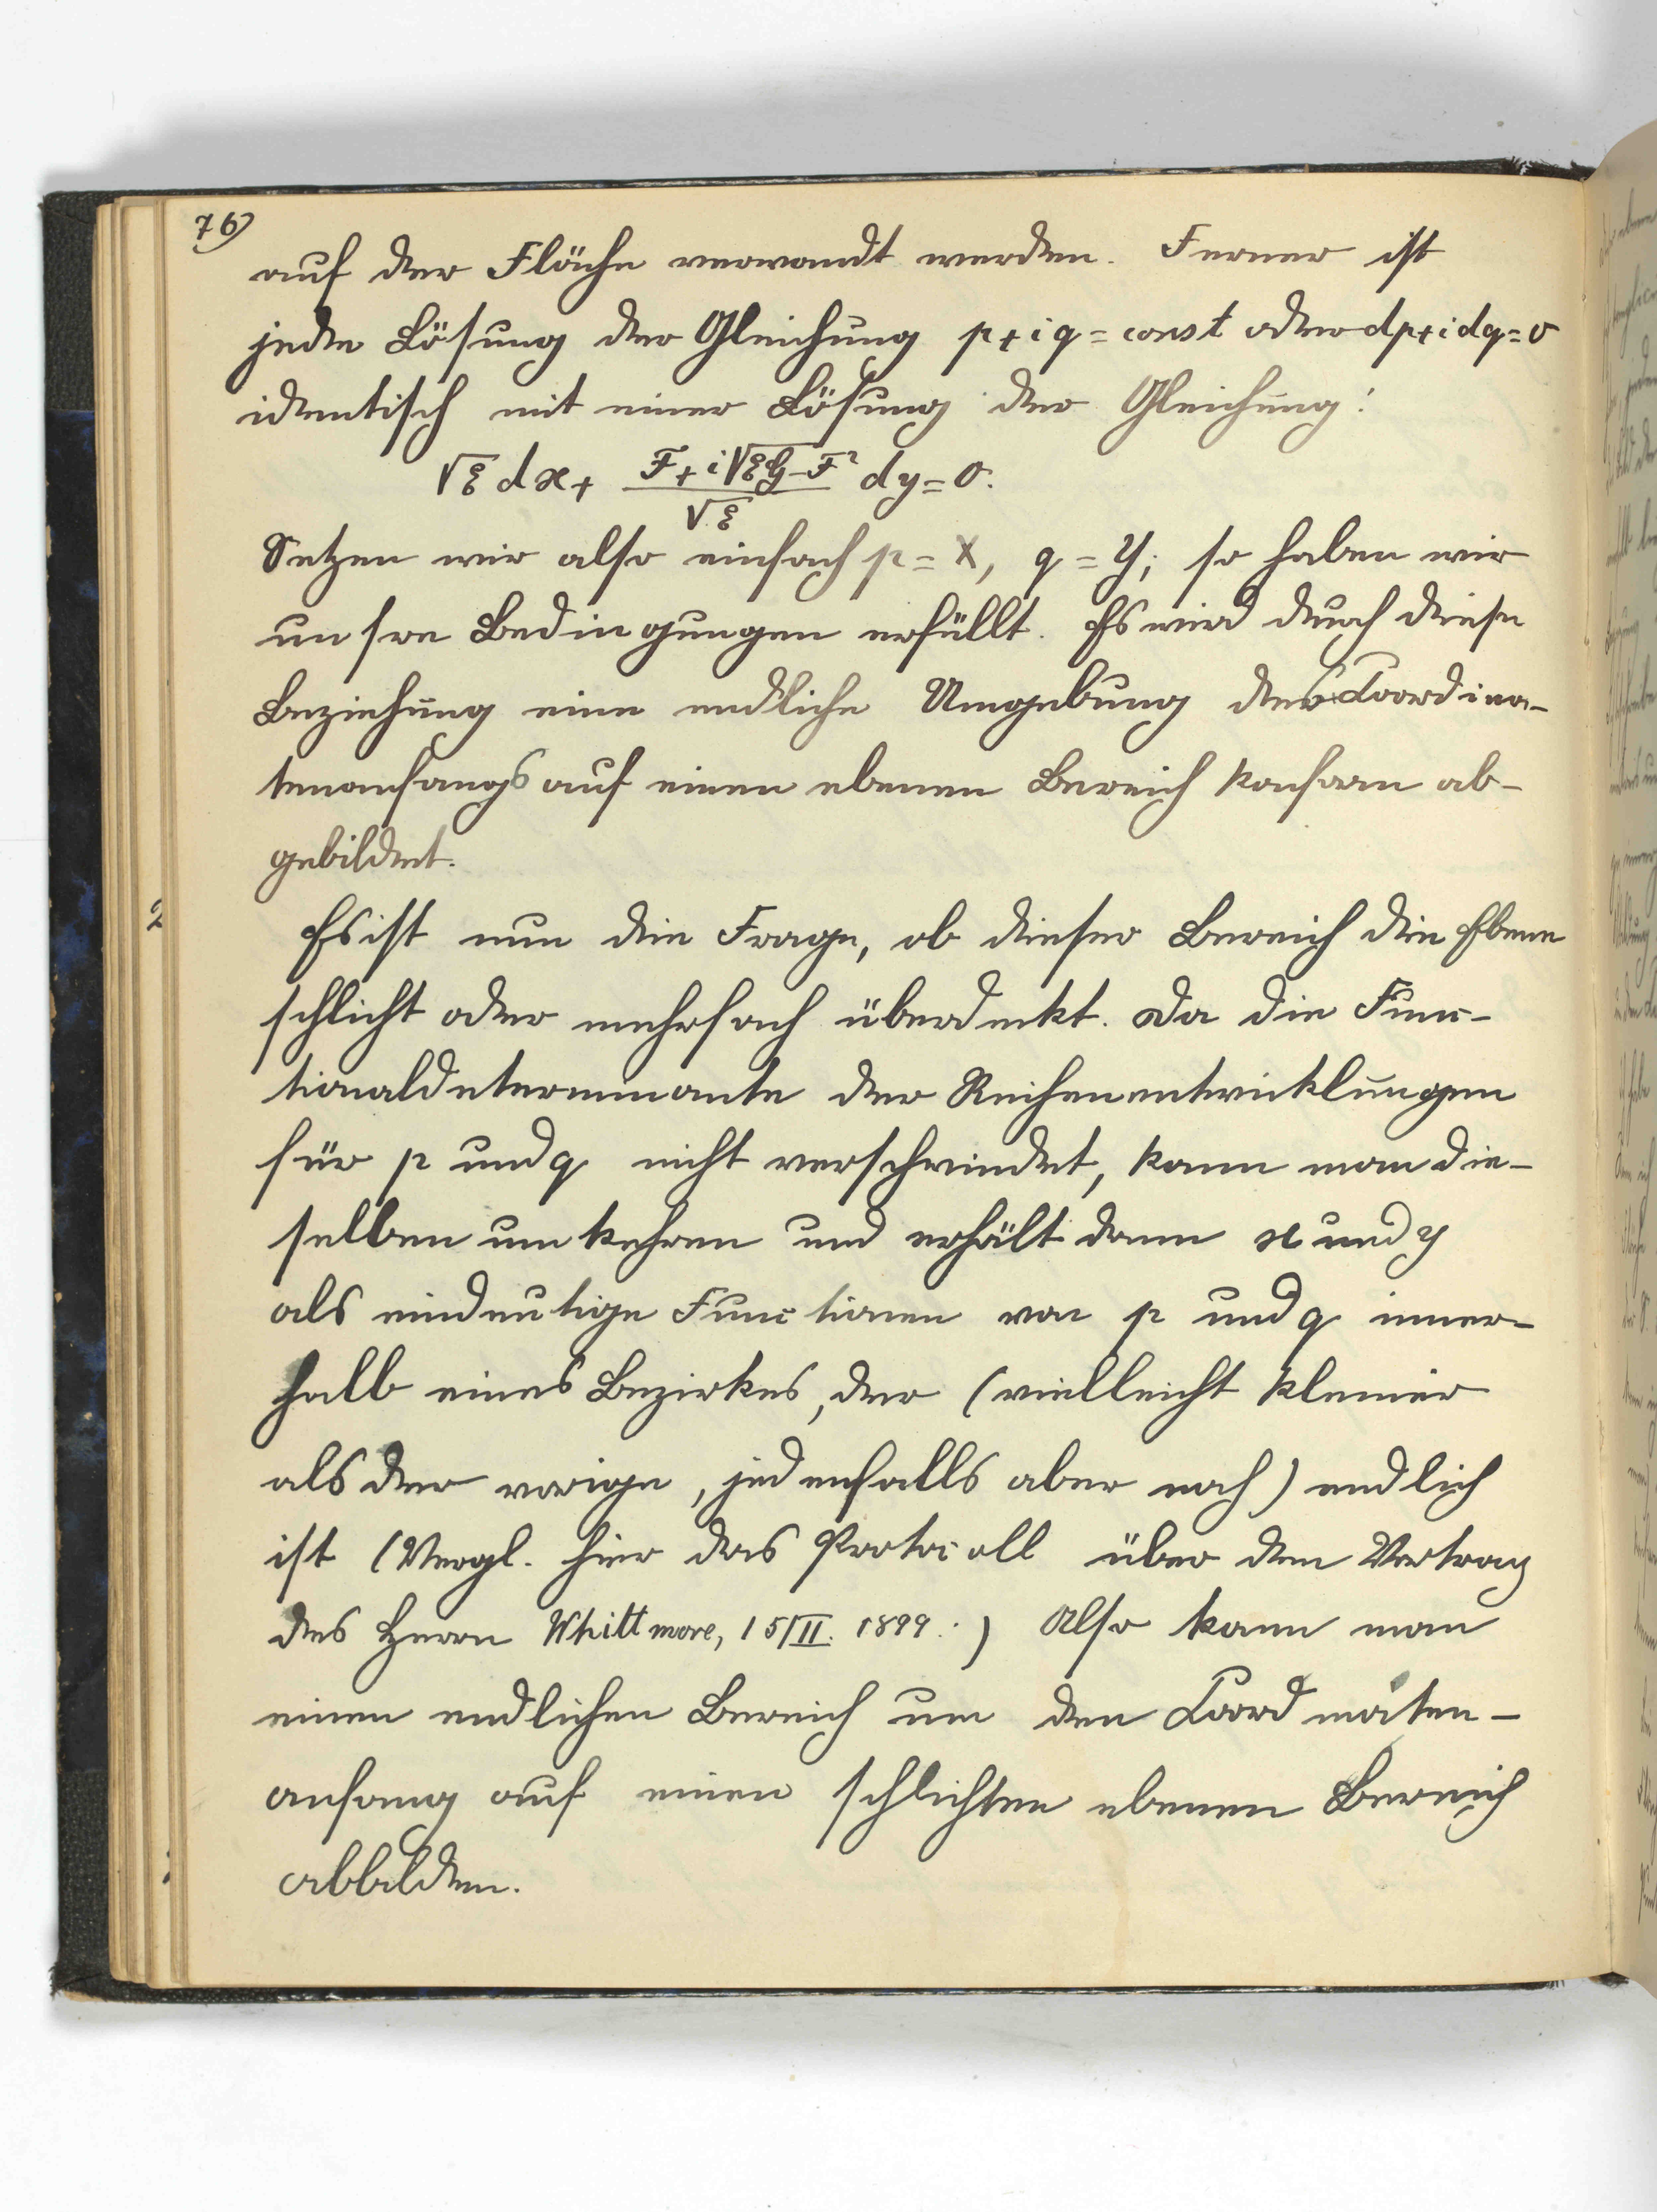 76)
auf der Fläche verwandt werden. Ferner ist
jede Lösung der Gleichung p+iq=const oder dp+idq=0
identisch mit einer Lösung der Gleichung:
√ℰ dx + (F+i√(ℰG-F²))/√ℰ dy=0.
Setzen wir also einfach p=X, q=Y; so haben wir
unsre Bedingungen erfüllt. Es wird durch diese
Beziehung eine endliche Umgebung des Coordina-
tenanfangs auf einen ebenen Bereich konform ab-
gebildet.
Es ist nun die Frage, ob dieser Bereich die Ebene
schlicht oder mehrfach überdeckt. Da die Func-
tionaldeterminante der Reihenentwicklungen
für p und q nicht verschwindet, kann man die-
selben umkehren und erhält dann x und y
als eindeutige Functionen von p und q inner-
halb eines Bezirkes, der (vielleicht kleiner
als der vorige, jedenfalls aber noch) endlich
ist (Vergl. hier das Protocoll über den Vortrag
des Herrn Whittmore, 15/II. 1899.) Also kann man
einen endlichen Bereich um den Coordinaten-
anfang auf einen schlichten ebenen Bereich
abbilden.